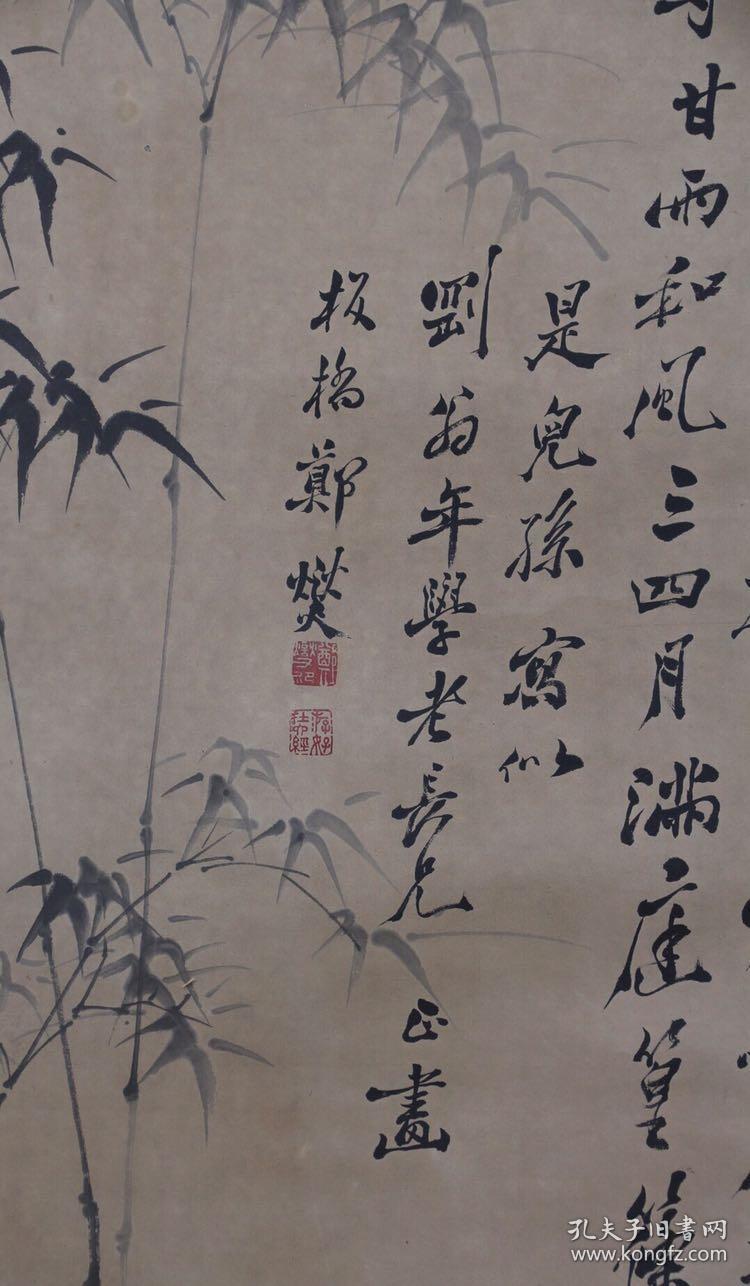 甘雨和風三四月滿庭篁
是兒孫寫似
劉翁年學老長兄
正畫
板橋鄭燮
孔夫子旧书网
www.kongfz.com